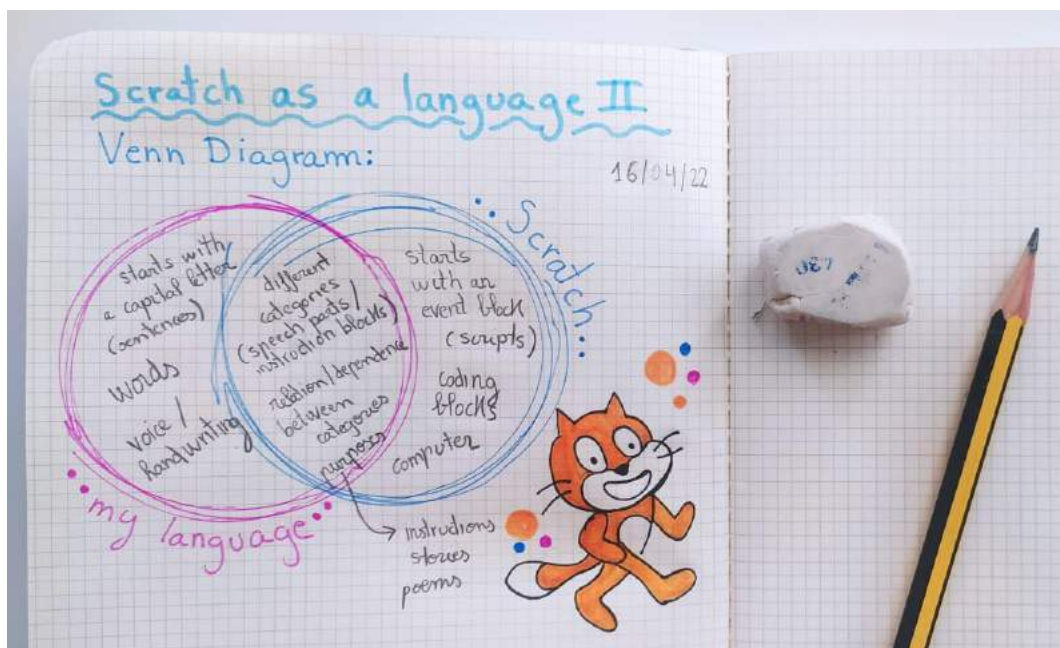 Scratch as a language II
Venn Diagram:
16/04/22
starts with
a capital letter
(sentences)
words
voice /
handwriting
different
categories
(speech parts/
instruction blocks)
relation/dependence
between
categories
purposes
instructions
stories
poems
starts
with an
event block
(scripts)
coding
blocks
computer
my language
Scratch